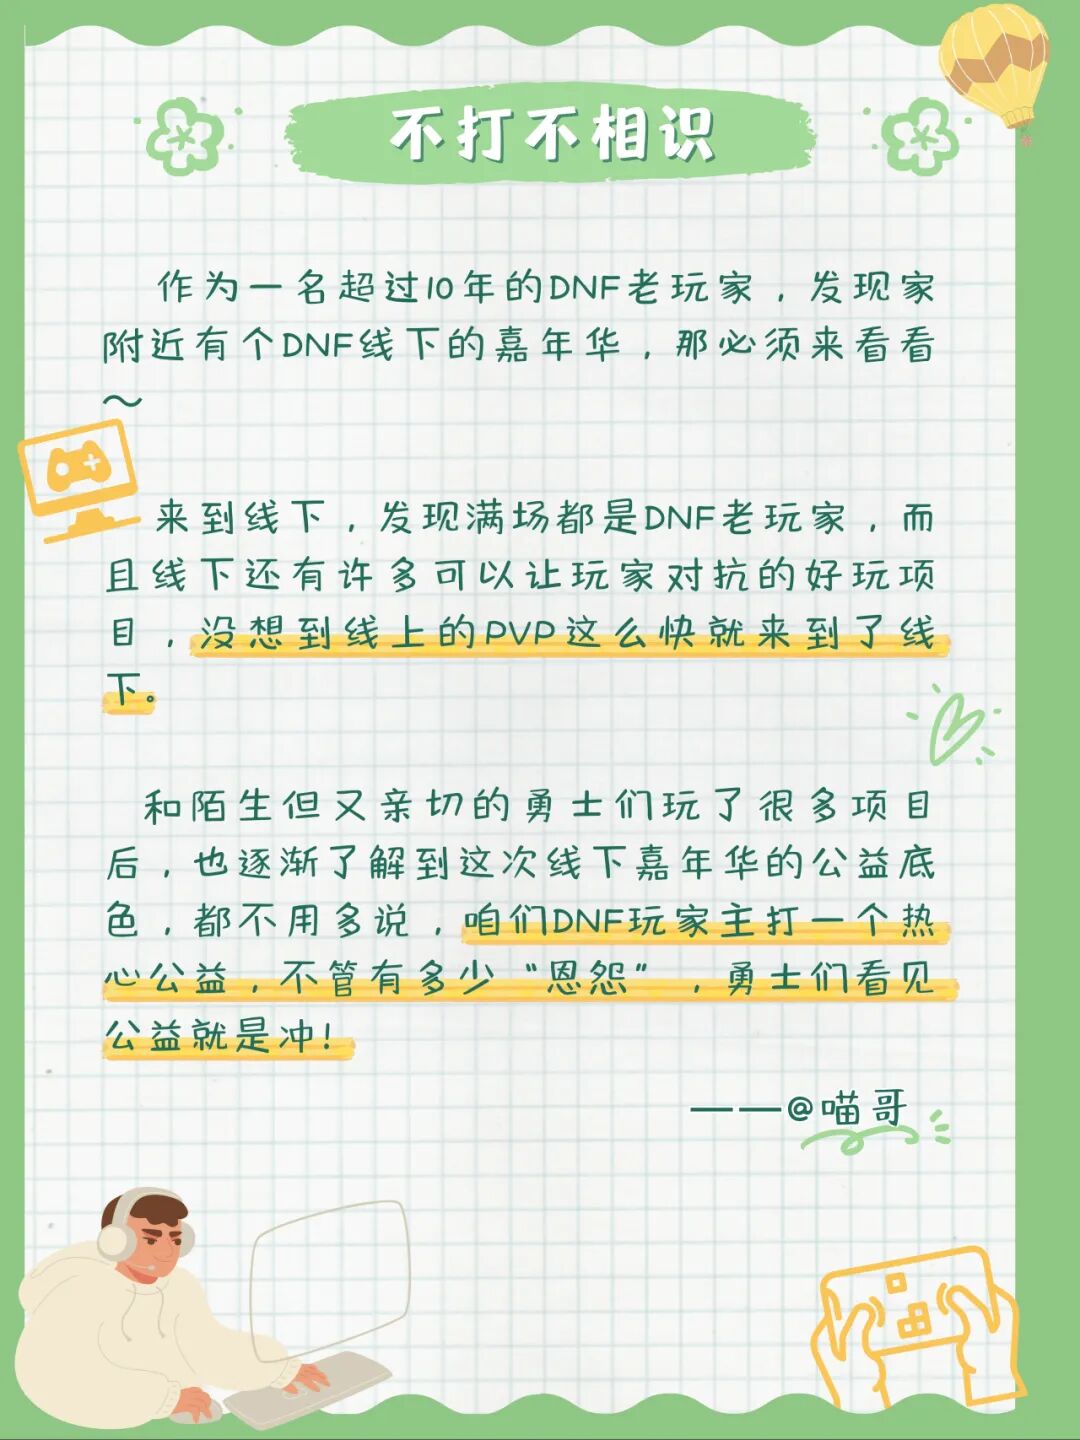 不打不相识
作为一名超过10年的DNF老玩家，发现家
附近有个DNF线下的嘉年华，那必须来看看
～
来到线下，发现满场都是DNF老玩家，而
且线下还有许多可以让玩家对抗的好玩项
目，没想到线上的PVP这么快就来到了线
下。
和陌生但又亲切的勇士们玩了很多项目
后，也逐渐了解到这次线下嘉年华的公益底
色，都不用多说，咱们DNF玩家主打一个热
心公益，不管有多少“恩怨”，勇士们看见
公益就是冲！
——@喵哥